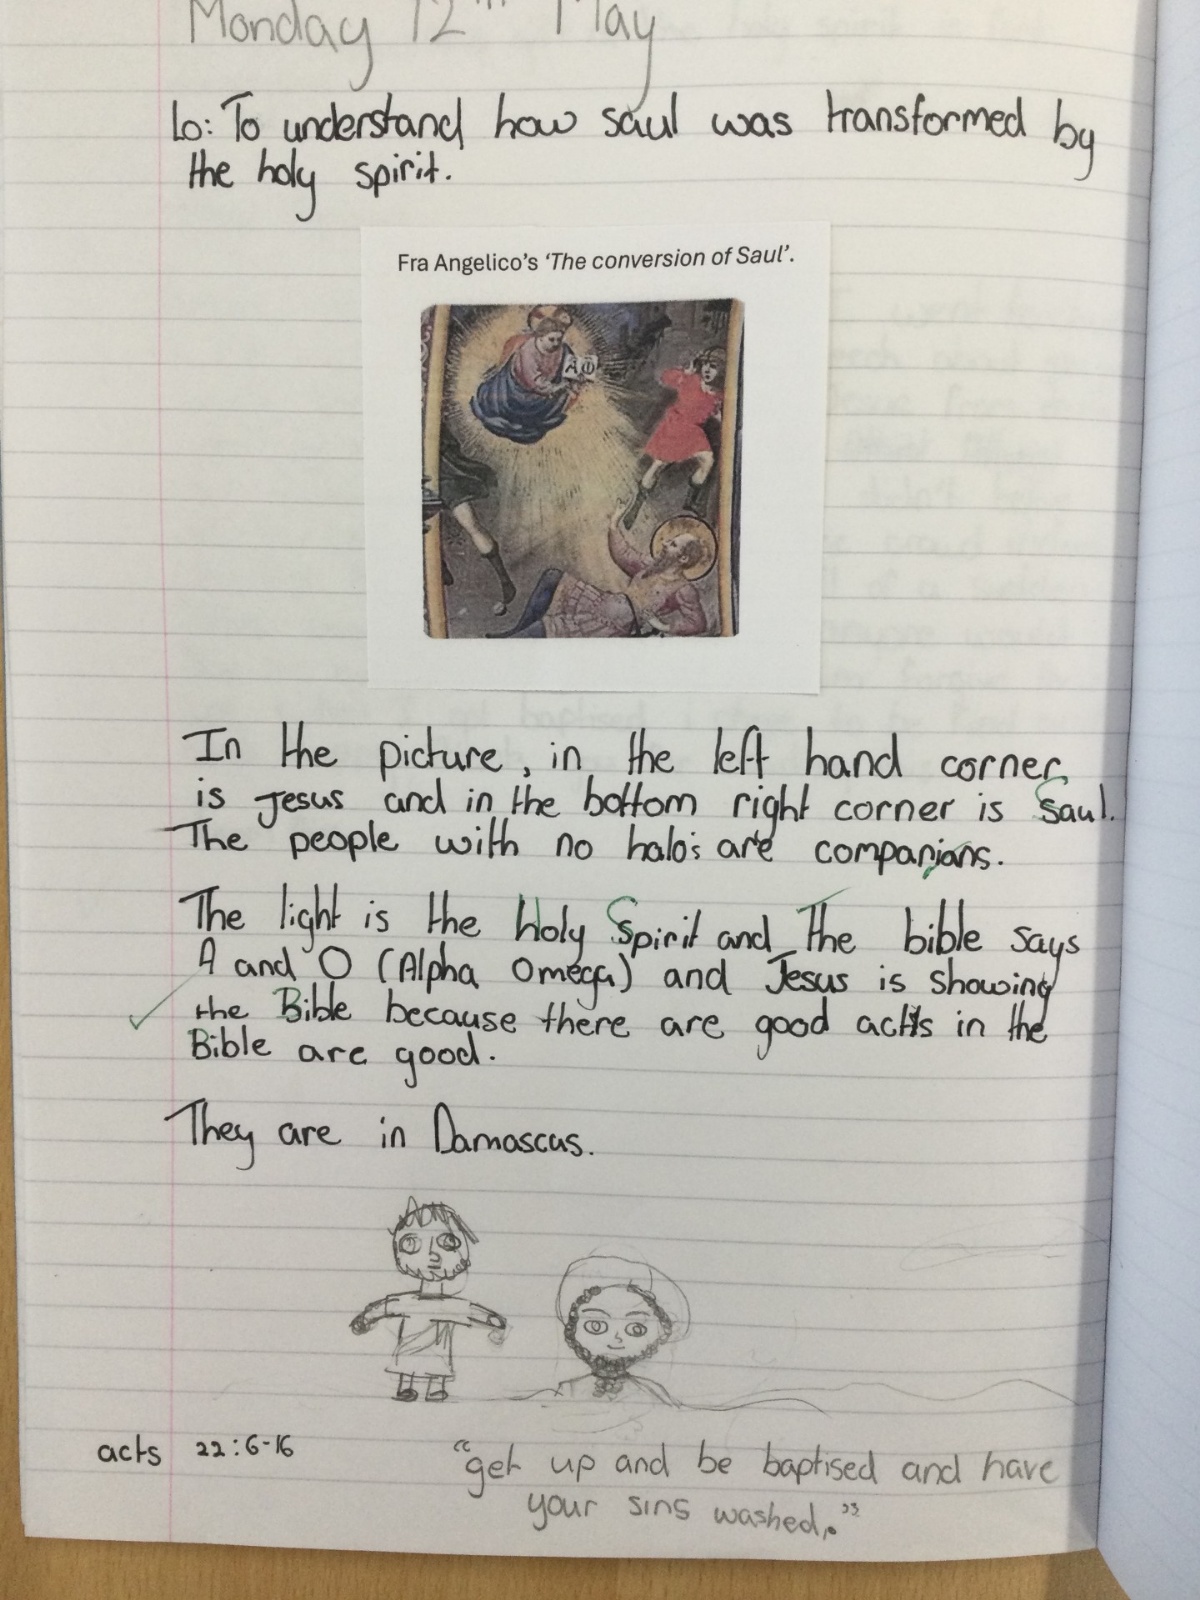 Monday 12th May
Lo: To understand how saul was transformed by
the holy spirit.
Fra Angelico's 'The conversion of Saul'.
A Ѡ
In the picture, in the left hand corner
is Jesus and in the bottom right corner is Saul.
The people with no halo's are companians.
The light is the Holy Spirit and The bible says
A and O (Alpha Omega) and Jesus is showing
the Bible because there are good acts in the
Bible are good.
They are in Damascus.
acts 22:6-16
"get up and be baptised and have
your sins washed."